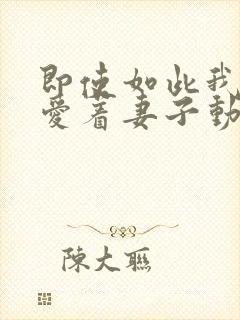 即使如此我
愛着妻子動
陳大聯